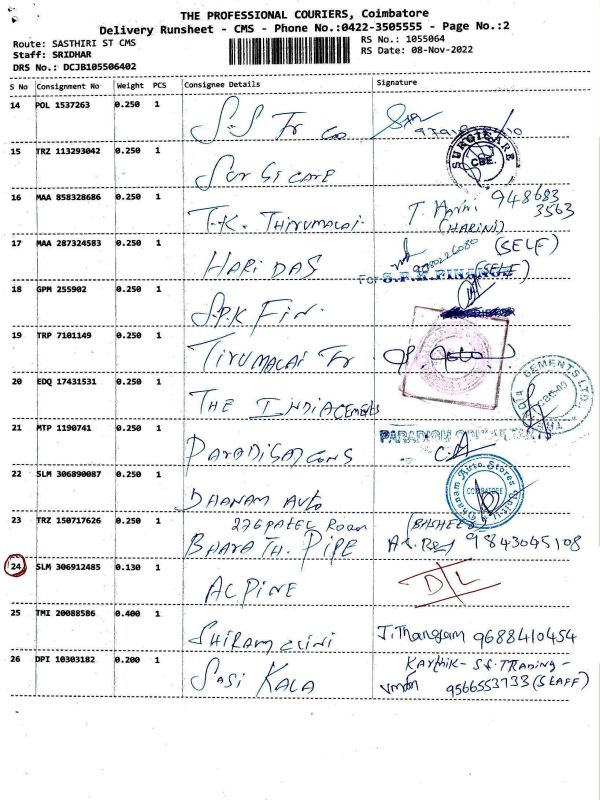 THE PROFESSIONAL COURIERS, Coimbatore
Delivery Runsheet - CMS - Phone No.:0422-3505555 - Page No.:2
Route: SASTHIRI ST CMS
Staff: SRIDHAR
DRS No.: DCJB105506402
RS No.: 1055064
RS Date: 08-Nov-2022
S No Consignment No Weight PCS Consignee Details Signature
14 POL 1537263 0.250 1 S.S Tr Co
15 TRZ 113293042 0.250 1 Sur Gi CARE
SURGICARE CBE.
16 MAA 858328686 0.250 1 T.K. THIRUMALAI. T. 948683
3563
(HARINI)
17 MAA 287324583 0.250 1 HARIDAS 9080226080 (SELF)
18 GPM 255902 0.250 1 S.P.K FIN. For S.P.K FINANCE (SELF)
19 TRP 7101149 0.250 1 TIRUMALAI Tr
20 EDQ 17431531 0.250 1 THE INDIACEMENTS
CEMENTS LTD.
21 MTP 1190741 0.250 1 PARADIGM CONS PARADIGM CONSULTANT
C.A
22 SLM 306890087 0.250 1 DHANAM AUTO
Dhanam Auto Stores COIMBATORE
23 TRZ 150717626 0.250 1 276 PATEL ROAD (BASHEER)
BHARATH. PIPE 9843045108
24 SLM 306912485 0.130 1 ALPINE D/L
25 TMI 20088586 0.400 1 SHIRAM CLINI J.Thangam 9688410454
26 DPI 10303182 0.200 1 SASI KALA Karthik- S.S. TRADING -
9566553733 (STAFF)